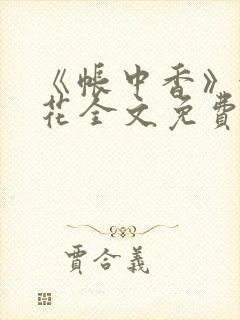 《帳中香》
花全文免費
賈合義